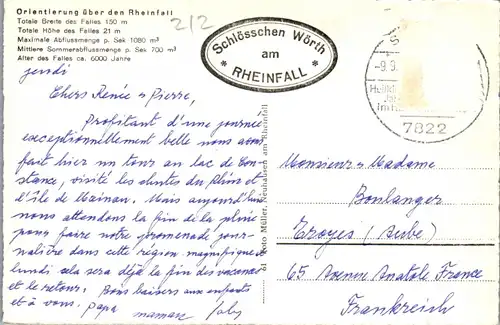 Orientierung über den Rheinfall
Totale Breite des Falles 150 m
Totale Höhe des Falles 21 m
Maximale Abflussmenge p. Sek 1080 m³
Mittlere Sommerabflussmenge p. Sek 700 m³
Alter des Falles ca. 6000 Jahre
2/2
Schlösschen Wörth
am
RHEINFALL
-9.9.
7822
jeudi
Chers Renée & Pierre,
Profitant d'une journée
exceptionnellement belle nous avons
fait hier un tour au lac de Con-
stance, visité les chutes du Rhin et
l'île de Mainau. Mais aujourd'hui
nous attendons la fin de la pluie
pour faire notre promenade jour-
nalière dans cette région magnifique et
lundi cela sera déjà la fin des vacances
et le retour. Bons baisers aux enfants
et à vous. Papa maman
Foto Müller, Neuhausen am Rheinfall
Monsieur & Madame
Boulanger
Troyes (Aube)
65 Avenue Anatole France
Frankreich